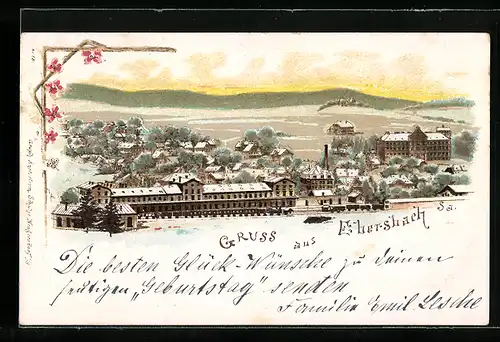 Gruss aus Ebersbach Sa.
Die besten Glück-Wünsche zu deinem
heutigen „Geburtstag" senden
Familie Emil Lesche